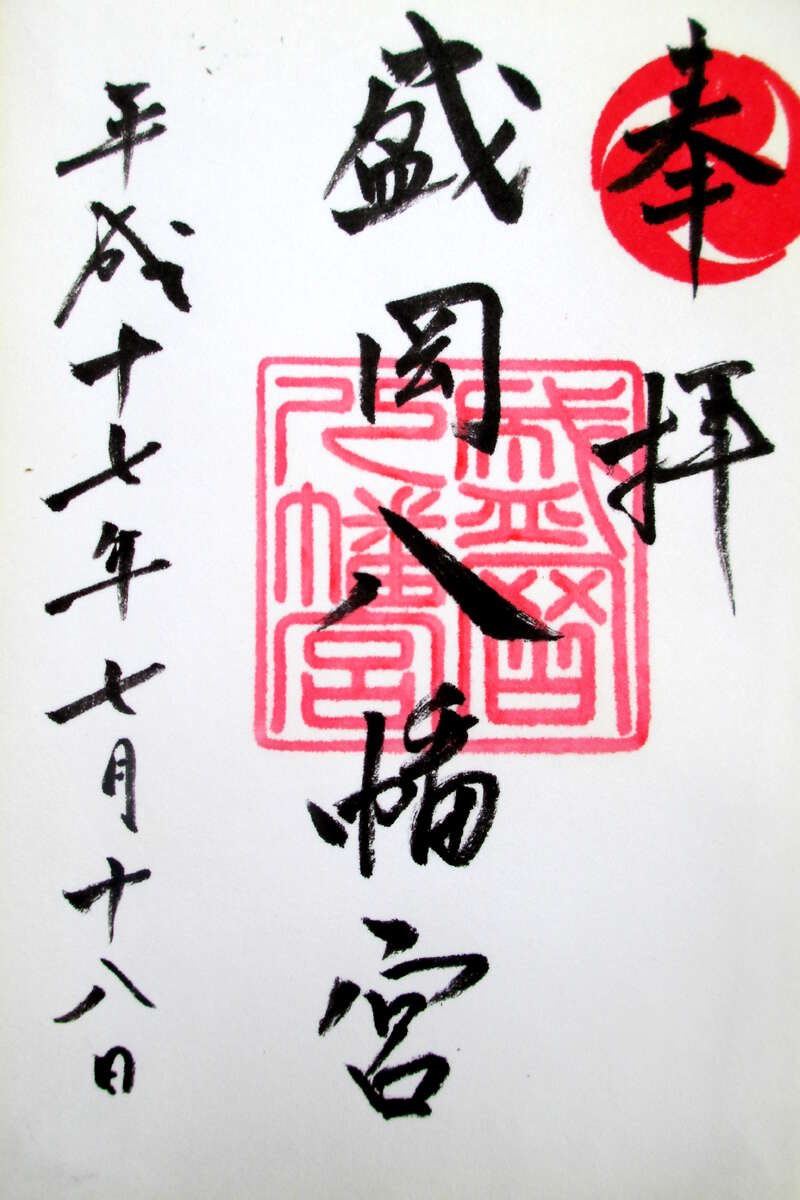 奉拝
盛岡八幡宮
盛岡八幡宮
平成十七年七月十八日